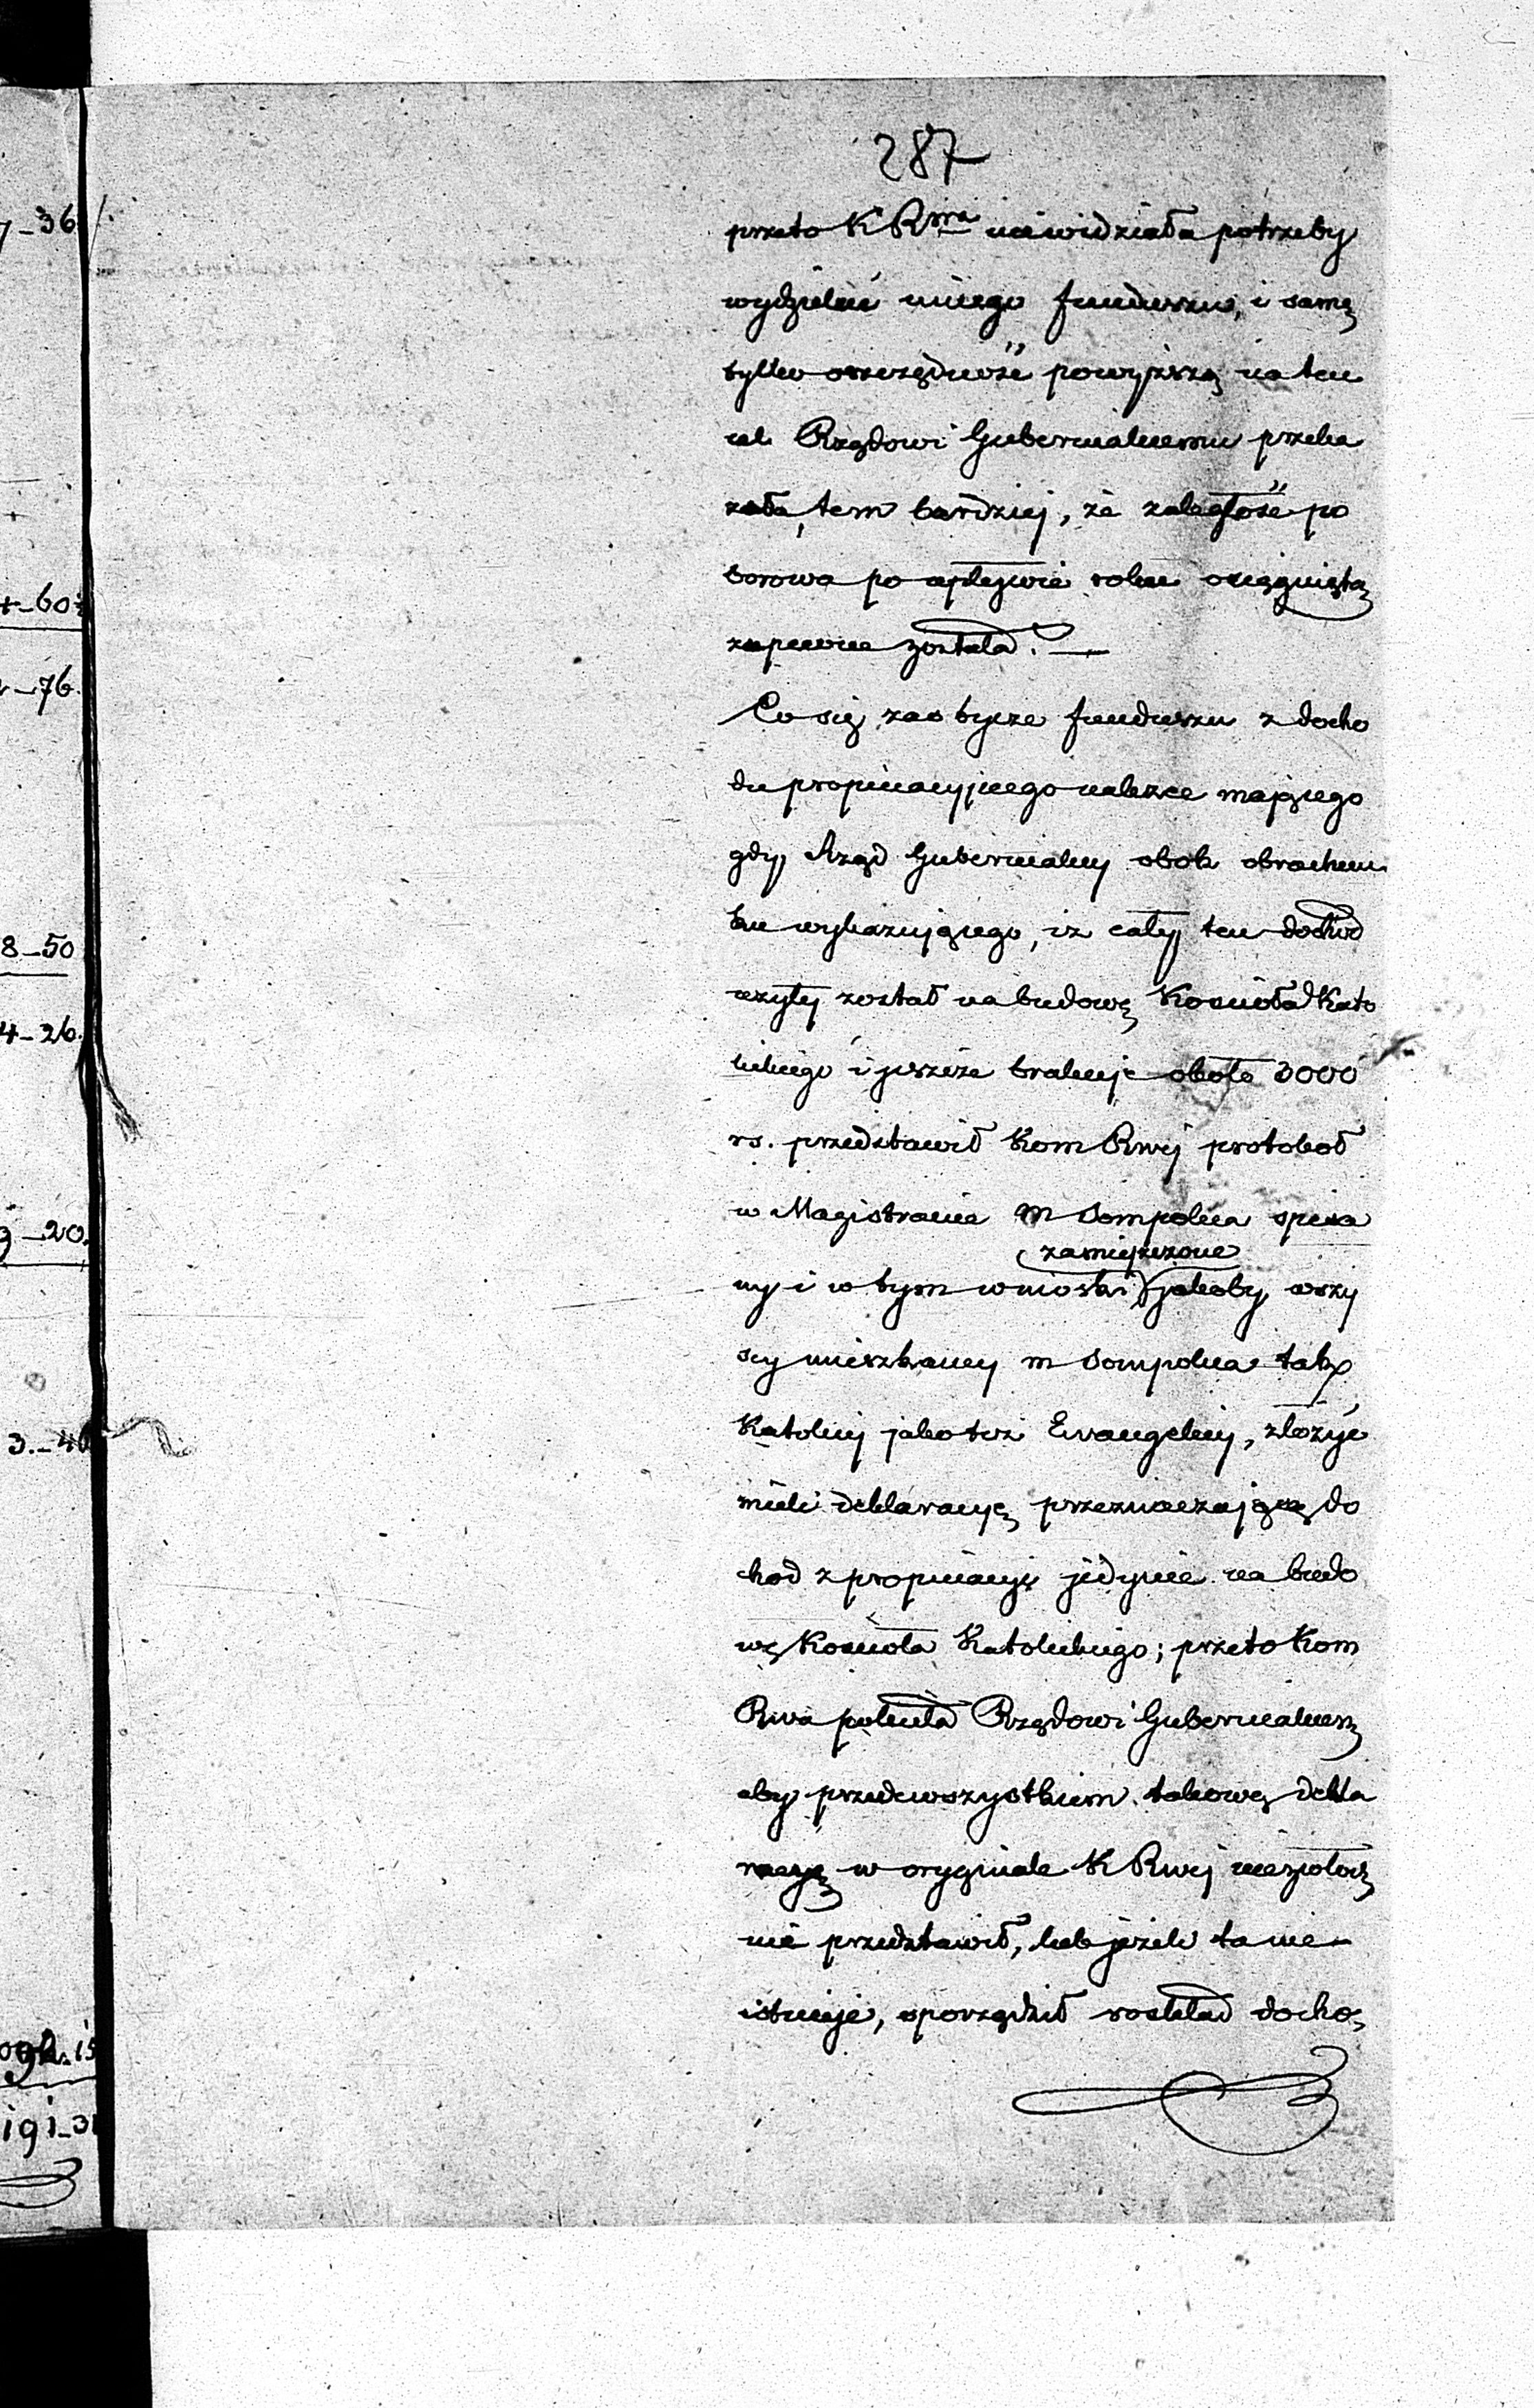 287
przeto K Rwa niewidziała potrzeby
wydzielać innego funduszu, i samę
tylko oszczędność powyższą na ten
cel Rządowi Gubernialnemu przeka
zała, tem bardziej, że zaległość po
borowa po upływie roku osiągniętą
zapewne została. —
Co się zaś tycze funduszu z docho
du propinacyjnego należeć mającego
gdy Rząd Gubernialny obok obrachun
ku wykazującego, iż cały ten dochód
użyty został na budowę Kościoła Kato
lickiego i jeszcze brakuje około 3000
rs. przedstawił Kom Rwej protokół
w Magistracie m Sompolna spisa
zamieszczone
ny i w tym wnioski jakoby wszy
scy mieszkańcy m Sompolna tak
Katolicy jako też Ewangelicy, złożyć
mieli deklaracyę przeznaczającą do
chód z propinacyi jedynie na budo
wę Kościoła Katolickiego; przeto Kom
Rwa poleciła Rządowi Gubernialnem
aby przedewszystkiem takową dekla
racyę w oryginale K Rwej niezwłocz
nie przedstawił, lub jeżeli ta nie
istnieje, sporządził rozkład docho
7-36
4-60
-76.
8-50
4-26.
3-20.
3.-40